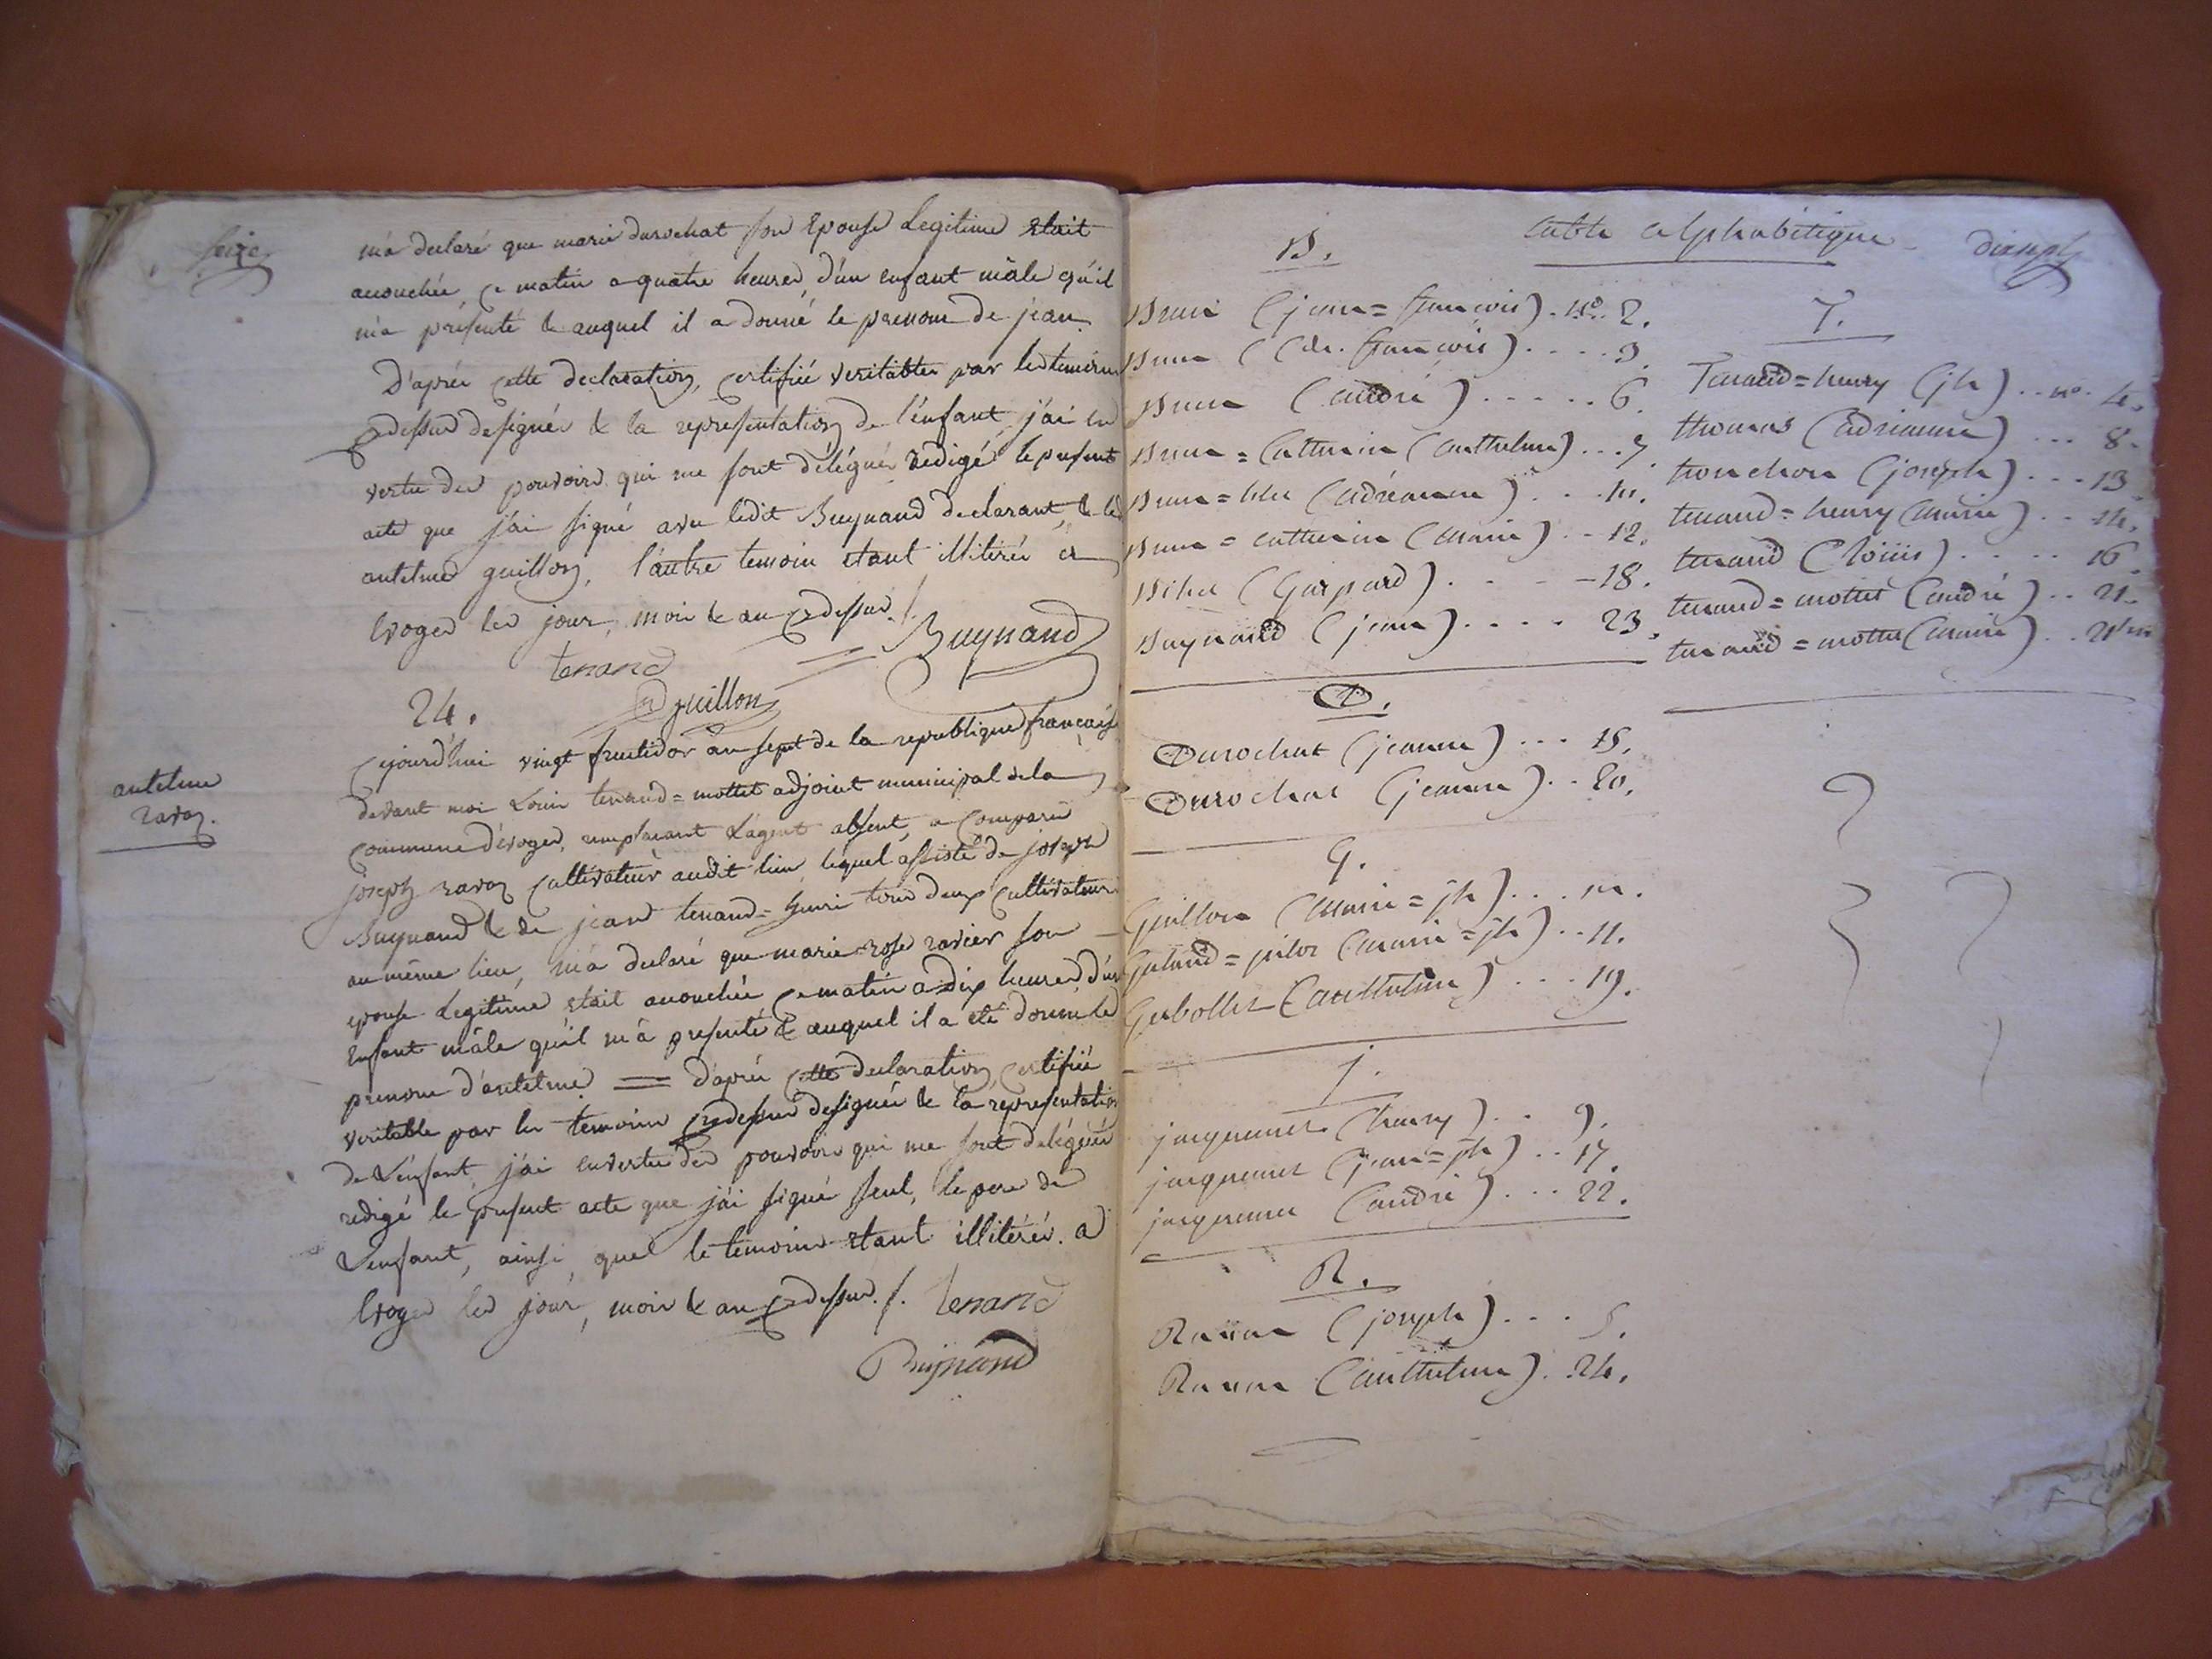 seize
m'a declaré que marie durochat son Epouse Legitime etait
accouchée, ce matin a quatre heures, d'un enfant mâle qu'il
m'a présenté & auquel il a donné le prenom de jean.
D'aprés cette declaration, certifiée veritable par les temoins
cydessus designés & la representation de l'enfant, j'ai en
vertu des pouvoirs qui me sont delégués rédigé le present
acte que j'ai signé avec ledit Buynand declarant, & le
antelme guillon, l'autre temoin étant illitéré a
Evoges les jour, mois & an cydessus ./.
Buynand
tenand
guillon
24.
antelme
ravoz
Cejourd'hui vingt fructidor an sept de la republique francaise
devant moi Louis tenand = mottet adjoint municipal de la
commune d'évoges, remplacant L'agent absent, a comparu
joseph ravoz cultivateur audit lieu, lequel assisté de joseph
Buynand & de jean tenand = henri tous deux cultivateurs
au même lieu, m'a declaré que marie-rose ravier son
epouse Legitime etait accouchée ce matin a dix heures, d'un
Enfant mâle qu'il m'a presenté & auquel il a eté donné le
prenom d'antelme = d'aprés cette declaration, certifiée
veritable par les temoins cydessus designés & la representation
de L'enfant, j'ai en vertu des pouvoirs qui me sont delégués
redigé le present acte que j'ai signé seul, le pere de
L'enfant, ainsi que le temoins etant illitérés. a
Evoges les jour, mois & an cydessus ./. tenand
Buynand
table alphabétique
dixsept
B.
(jean = francois) . No. 2.
(francois) .... 3.
(andré) ..... 6.
= Catherine (anthelme) ... 7.
(adrienne) ... 10.
= catherine (marie) .. 12.
(Gaspard) .... 18.
Buynand (jean) .... 23.
D.
Durochat (jeanne) ... 15.
Durochat (jeanne) .. 20.
G.
Guillon (marie = jh) ...
(marie = jh) .. 11.
Gerbollet (anthelme) ... 19.
j.
jacquemet (henry) .. 9.
jacquemet (jean = jh) .. 17.
jacquemet (andré) ... 22.
R.
Ravoz (joseph) .... 5.
Ravoz (anthelme) . 24.
T.
Tenand = henry (jh) .. no. 4.
thomas (adrienne) ... 8.
tronchon (joseph) ... 13.
tenand = henry (marie) .. 14.
tenand (Loüis) ..... 16.
tenand = mottet (andré) .. 21.
tenand = mottet (marie) .. 21 bis